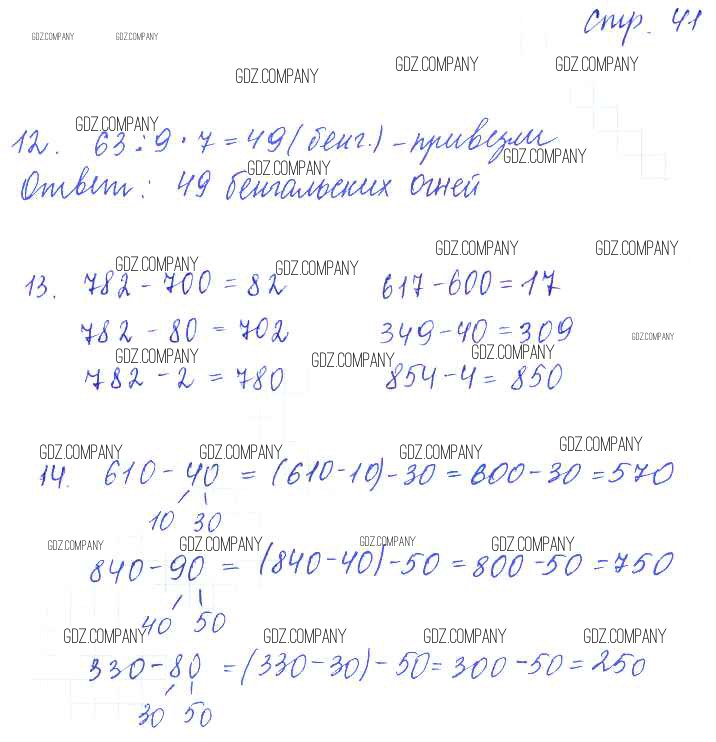 стр. 41
GDZ.COMPANY GDZ.COMPANY
GDZ.COMPANY GDZ.COMPANY GDZ.COMPANY
GDZ.COMPANY
12. 63 : 9 · 7 = 49 (бенг.) – привезли
GDZ.COMPANY GDZ.COMPANY
Ответ: 49 бенгальских огней
GDZ.COMPANY GDZ.COMPANY
GDZ.COMPANY GDZ.COMPANY
13. 782 - 700 = 82 617 - 600 = 17
782 - 80 = 702 349 - 40 = 309
GDZ.COMPANY
GDZ.COMPANY GDZ.COMPANY GDZ.COMPANY
782 - 2 = 780 854 - 4 = 850
GDZ.COMPANY GDZ.COMPANY GDZ.COMPANY GDZ.COMPANY
14. 610 - 40 = (610-10)-30 = 600-30 = 570
10 30
GDZ.COMPANY GDZ.COMPANY GDZ.COMPANY GDZ.COMPANY
840 - 90 = (840-40)-50 = 800-50 = 750
40 50
GDZ.COMPANY GDZ.COMPANY GDZ.COMPANY GDZ.COMPANY
330 - 80 = (330-30)-50 = 300-50 = 250
30 50